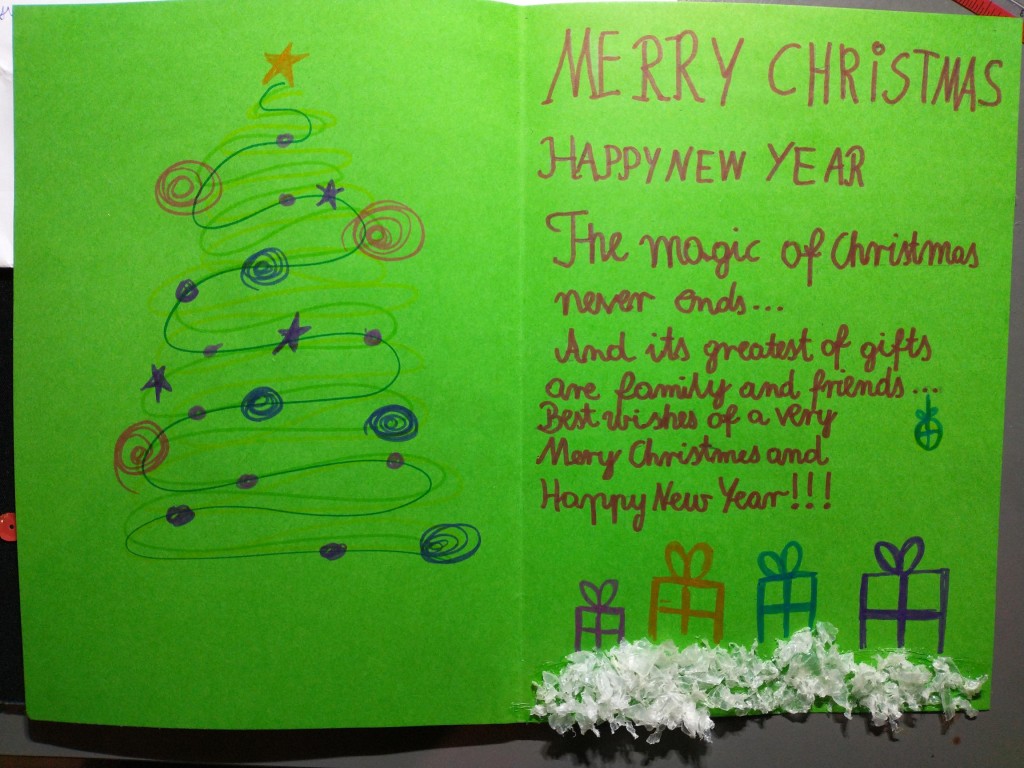 MERRY CHRiSTMAS
HAPPY NEW YEAR
The magic of Christmas
never ends...
And its greatest of gifts
are family and friends...
Best wishes of a very
Mery Christmes and
Happy New Year!!!